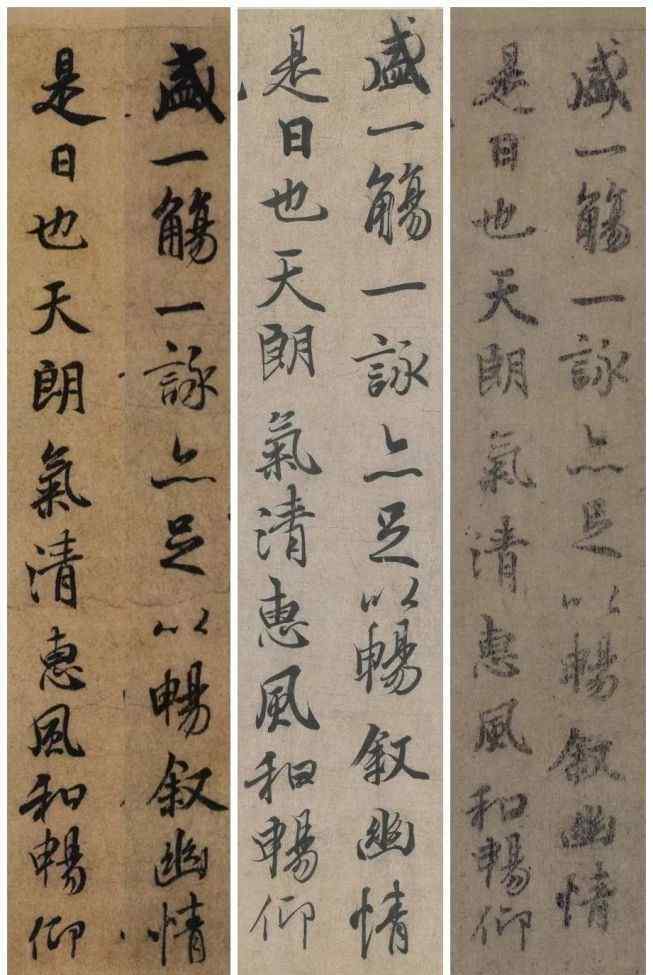 盛一觴一詠亦足以暢叙幽情
是日也天朗氣清惠風和暢仰
盛一觴一詠亦足以暢叙幽情
是日也天朗氣清惠風和暢仰
盛一觴一詠亦足以暢叙幽情
是日也天朗氣清惠風和暢仰